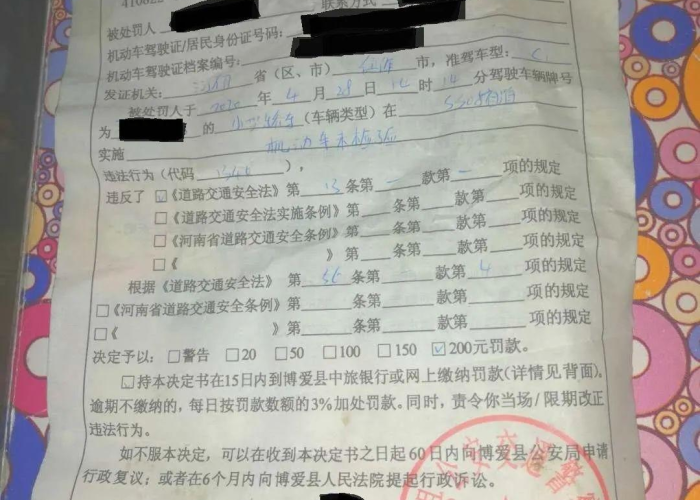 410822
联系方式
被处罚人
机动车驾驶证/居民身份证号码:
机动车驾驶证档案编号:
发证机关: 河南 省(区、市) 市,准驾车型: C1
被处罚人于 2020 年 4 月 28 日 时 14 分驾驶车辆牌号
为 的 小型轿车 (车辆类型)在
实施 机动车未检验
违法行为(代码 ),
违反了 ☑《道路交通安全法》第 13 条第 一 款第 一 项的规定
□《道路交通安全法实施条例》第 条第 款第 项的规定
□《河南省道路交通安全条例》第 条第 款第 项的规定
□《 》第 条第 款第 项的规定
根据《道路交通安全法》 第 条第 款第 4 项的规定
□《河南省道路交通安全条例》第 条第 款第 项的规定
□《 》第 条第 款第 项的规定
决定予以: □警告 □20 □50 □100 □150 ☑200元罚款。
☑持本决定书在15日内到博爱县中旅银行或网上缴纳罚款(详情见背面)。
逾期不缴纳的,每日按罚款数额的3%加处罚款。同时,责令你当场/限期改正
违法行为。
如不服本决定,可以在收到本决定书之日起60日内向博爱县公安局申请
行政复议;或者在6个月内向博爱县人民法院提起行政诉讼。
县公安交通警